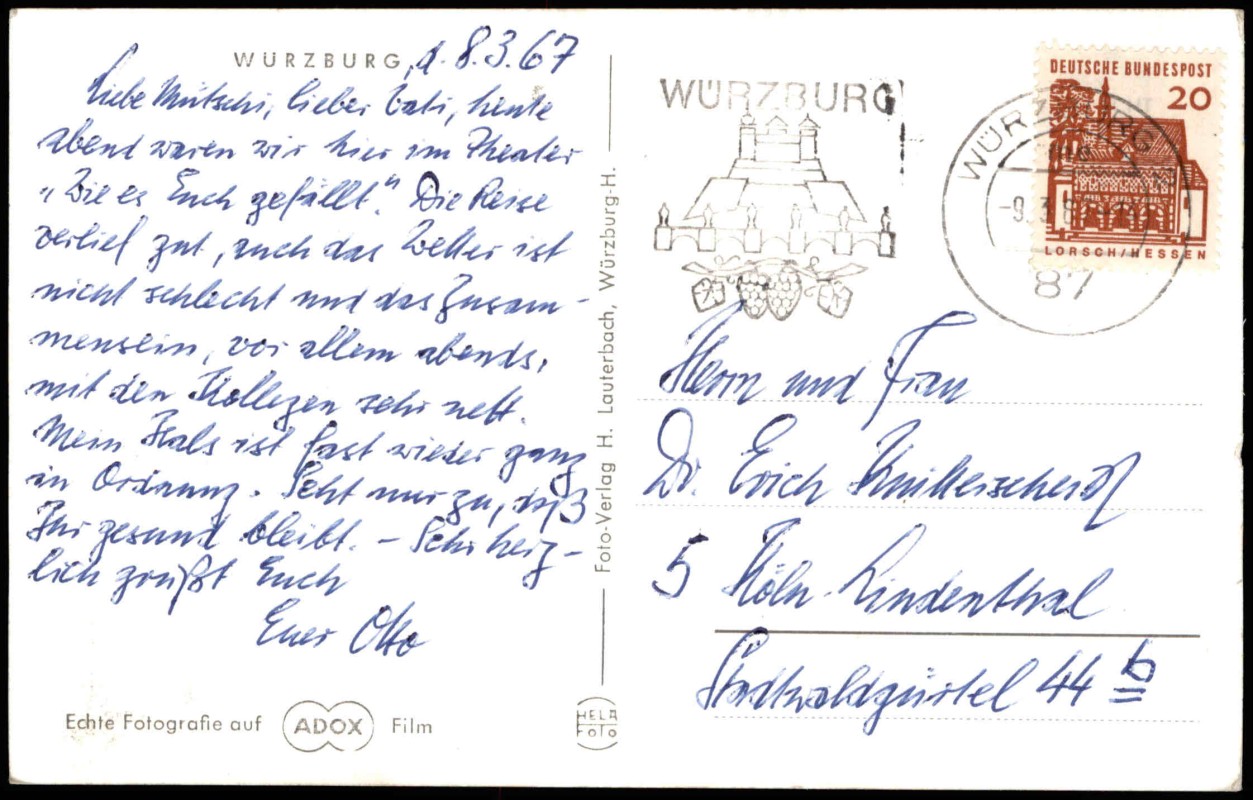 WÜRZBURG, d. 8.3.67
Liebe Mutschi, lieber Vati, heute
abend waren wir hier im Theater
„Wie es Euch gefällt“. Die Reise
verlief gut, auch das Wetter ist
nicht schlecht und das Zusam-
mensein, vor allem abends,
mit den Kollegen sehr nett.
Mein Hals ist fast wieder ganz
in Ordnung. Seht nur zu, daß
Ihr gesund bleibt. – Sehr herz-
lich grüßt Euch
Euer Otto
Echte Fotografie auf ADOX Film
Foto-Verlag H. Lauterbach, Würzburg-H.
HELA
FOTO
WÜRZBURG
WÜRZBURG
-9.3.67
87
DEUTSCHE BUNDESPOST
20
LORSCH/HESSEN
Herrn und Frau
Dr. Erich
5 Köln-Lindenthal
Stadtwaldgürtel 44 b